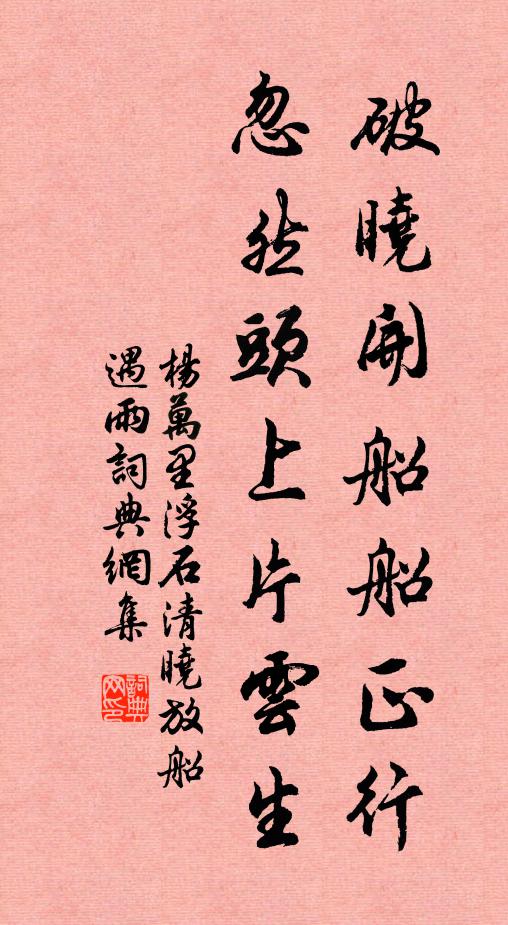 破曉開船船正行
忽然頭上片雲生
楊萬里浮石清曉放船
遇雨詞典網集
詞典
网印